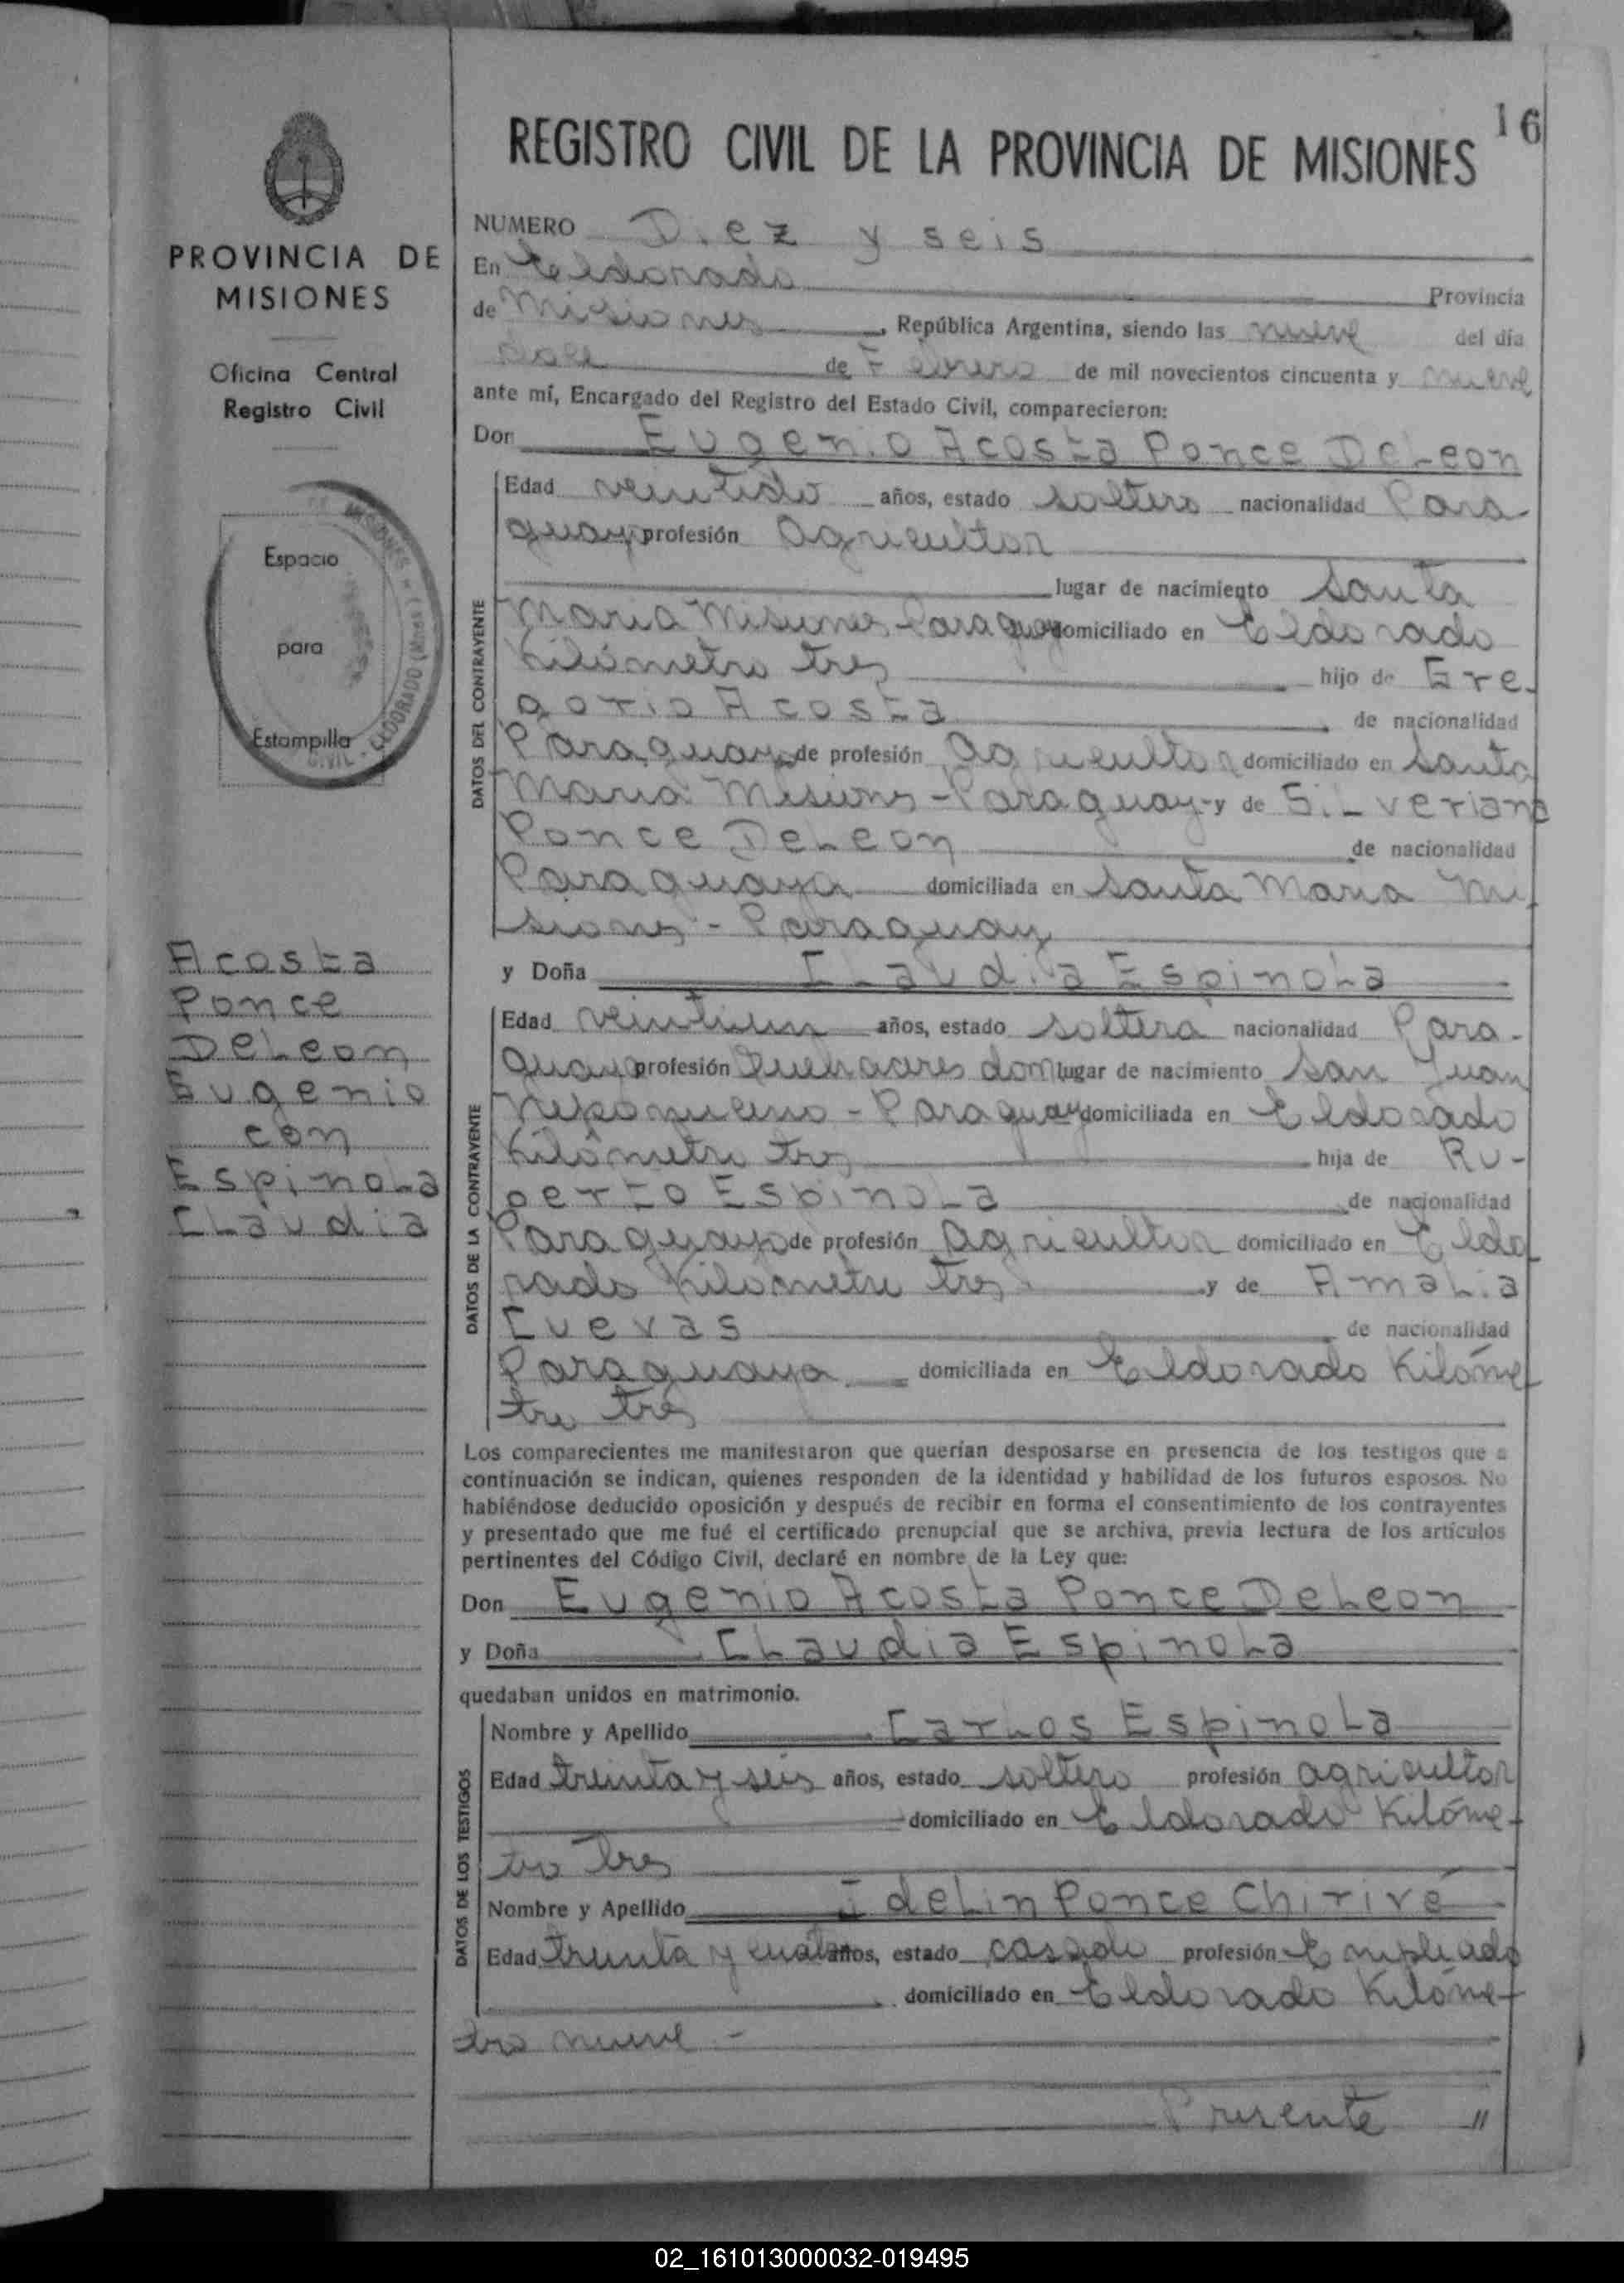 16
REGISTRO CIVIL DE LA PROVINCIA DE MISIONES
PROVINCIA DE
MISIONES
Oficina Central
Registro Civil
Espacio
para
Estampilla
MISIONES
ELDORADO
CIVIL
Acosta
Ponce
DeLeon
Eugenio
con
Espinola
Claudia
NUMERO Diez y seis
En Eldorado Provincia
de Misiones, República Argentina, siendo las nueve del día
doce de Febrero de mil novecientos cincuenta y nueve
ante mí, Encargado del Registro del Estado Civil, comparecieron:
Don Eugenio Acosta Ponce DeLeon
DATOS DEL CONTRAYENTE
Edad veintidos años, estado soltero nacionalidad Para-
guayo profesión Agricultor
lugar de nacimiento Santa
Maria Misiones Paraguay domiciliado en Eldorado
Kilómetro tres hijo de Gre-
gorio Acosta de nacionalidad
Paraguayo de profesión Agricultor domiciliado en Santa
Maria Misiones - Paraguay - y de Silveriana
Ponce DeLeon de nacionalidad
Paraguaya domiciliada en Santa Maria Mi-
siones - Paraguay
y Doña Claudia Espinola
DATOS DE LA CONTRAYENTE
Edad veintiun años, estado soltera nacionalidad Para-
guaya profesión Quehaceres dom lugar de nacimiento San Juan
Nepomuceno - Paraguay domiciliada en Eldorado
Kilómetro tres hija de Ru-
perto Espinola de nacionalidad
Paraguayo de profesión Agricultor domiciliado en Eldo-
rado Kilómetro tres y de Amalia
Cuevas de nacionalidad
Paraguaya domiciliada en Eldorado Kilóme-
tro tres
Los comparecientes me manifestaron que querían desposarse en presencia de los testigos que a
continuación se indican, quienes responden de la identidad y habilidad de los futuros esposos. No
habiéndose deducido oposición y después de recibir en forma el consentimiento de los contrayentes
y presentado que me fué el certificado prenupcial que se archiva, previa lectura de los artículos
pertinentes del Código Civil, declaré en nombre de la Ley que:
Don Eugenio Acosta Ponce DeLeon
y Doña Claudia Espinola
quedaban unidos en matrimonio.
DATOS DE LOS TESTIGOS
Nombre y Apellido Carlos Espinola
Edad treinta y seis años, estado soltero profesión agricultor
domiciliado en Eldorado Kilóme-
tro tres
Nombre y Apellido Idelin Ponce Chirivé
Edad treinta y cuatro años, estado casado profesión Empleado
domiciliado en Eldorado Kilóme-
tro nueve -
Presente "
02_161013000032-019495